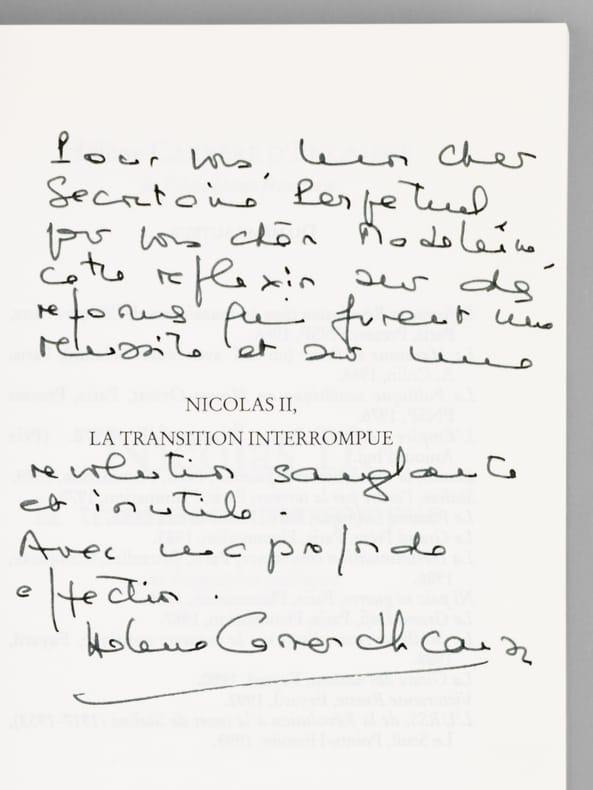 Pour vous, mon cher
Secretaire Perpetuel
pour vous chère Madeleine
cette reflexion sur des
reformes qui furent une
reussite et sur une
NICOLAS II,
LA TRANSITION INTERROMPUE
revolution sanglante
et inutile.
Avec ma profonde
affection.
Helene Carrere d'Encausse